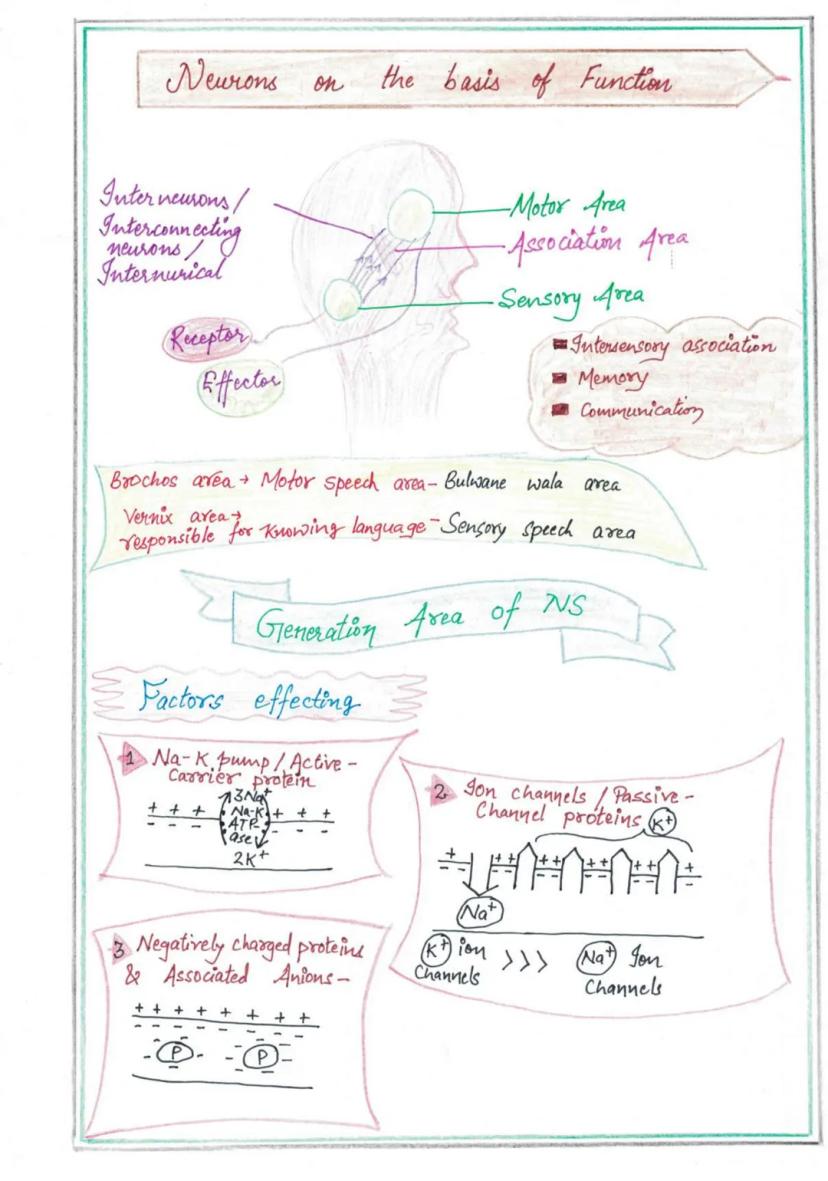 Neurons on the basis of Function
Interneurons /
Interconnecting
neurons /
Internurical
Motor Area
Association Area
Sensory Area
Receptor
Effector
Intersensory association
Memory
Communication
Brochos area → Motor speech area - Bulwane wala area
Vernix area →
responsible for knowing language - Sensory speech area
Generation Area of NS
Factors effecting
1 Na-K pump / Active -
Carrier protein
3Na+
+ + + Na-K + + +
- - - ATP - - -
ase
2K+
2 Ion channels / Passive -
Channel proteins K+
+ ++ ++ ++ ++ +
-- -- -- -- -- -
Na+
K+ ion >>> Na+ Ion
Channels Channels
3 Negatively charged proteins
& Associated Anions -
+ + + + + + +
- P - - P -